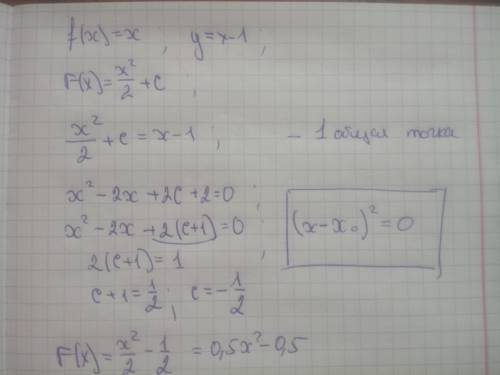 f(x)=x ; y=x-1 ;
F(x)= x²/2 +C ;
x²/2 +C = x-1 ; - 1 общая точка
x²-2x+2C+2=0 ;
x²-2x+2(C+1)=0 ;
(x-x₀)²=0
2(C+1)=1
C+1=1/2 ; C=-1/2
F(x)= x²/2 - 1/2 = 0,5x²-0,5